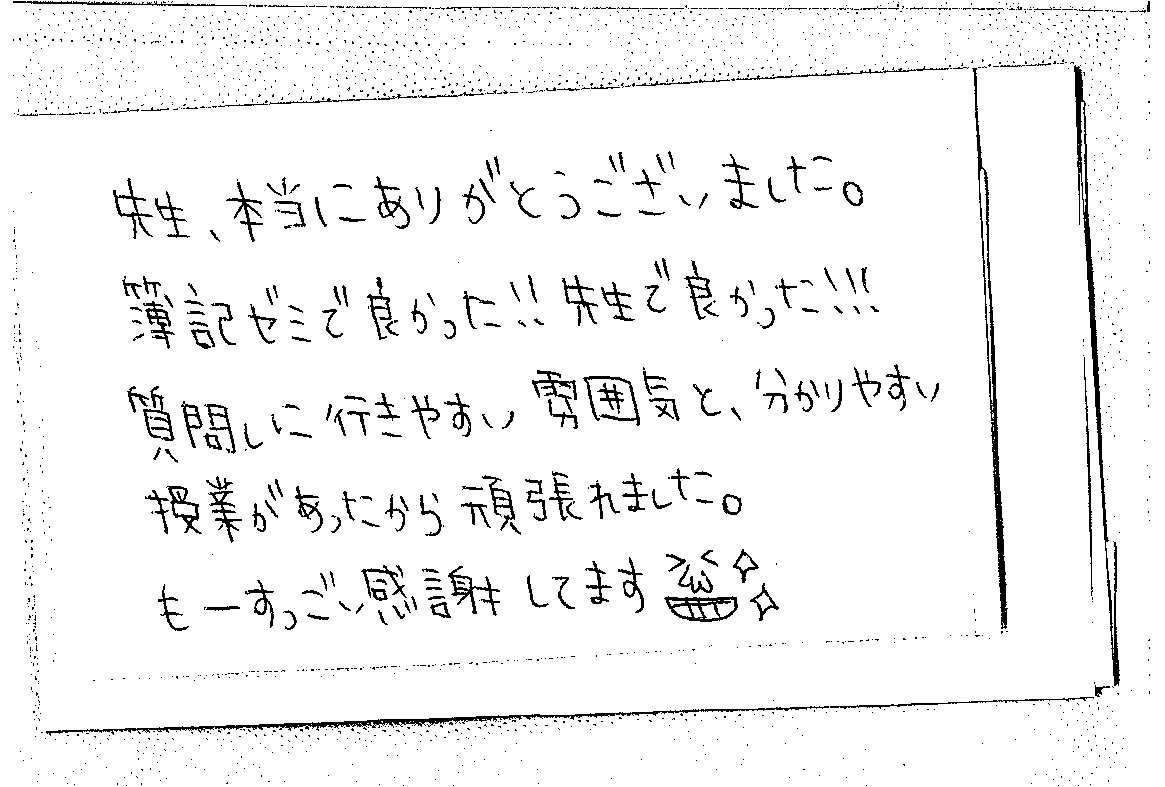 先生、本当にありがとうございました。
簿記ゼミで良かった!!先生で良かった!!!
質問しに行きやすい雰囲気と、分かりやすい
授業があったから頑張れました。
もーすっごい感謝してます